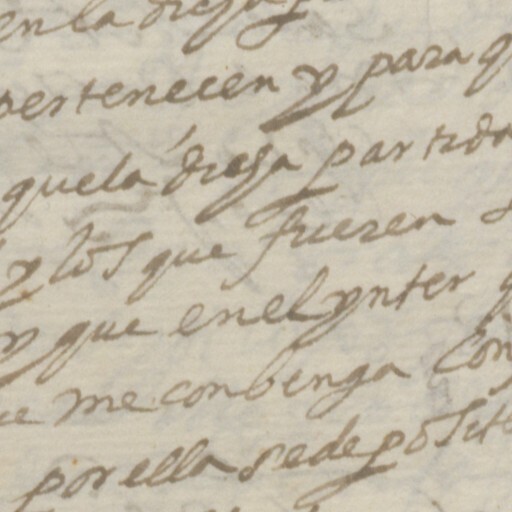 en la dicha
pertenecen y para q
que la dicha partida
y los que fueren
y que en el ynter q
me conbenga con
por ella se deposite